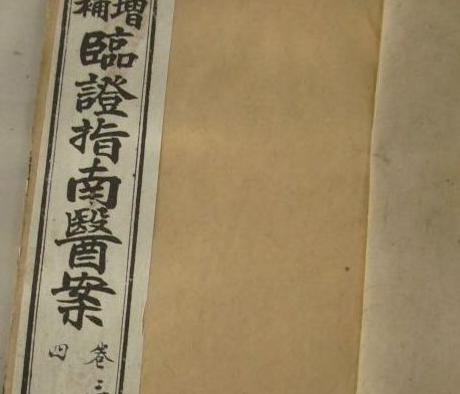 增補
臨證指南醫案
卷三
四